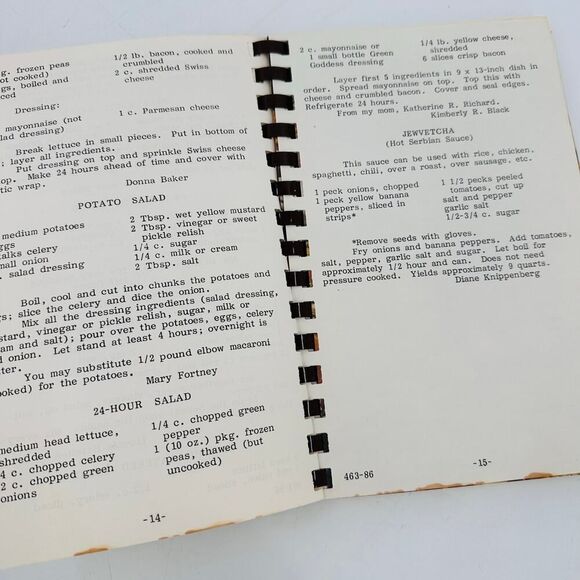 g. frozen peas
not cooked)
gs, boiled and
iced
1/2 lb. bacon, cooked and
crumbled
2 c. shredded Swiss
cheese
Dressing:
mayonnaise (not
lad dressing)
1 c. Parmesan cheese
Break lettuce in small pieces. Put in bottom of
; layer all ingredients.
Put dressing on top and sprinkle Swiss cheese
op. Make 24 hours ahead of time and cover with
tic wrap.
Donna Baker
POTATO SALAD
medium potatoes
ggs
talks celery
mall onion
. salad dressing
2 Tbsp. wet yellow mustard
2 Tbsp. vinegar or sweet
pickle relish
1/4 c. sugar
1/4 c. milk or cream
2 Tbsp. salt
Boil, cool and cut into chunks the potatoes and
gs; slice the celery and dice the onion.
Mix all the dressing ingredients (salad dressing,
stard, vinegar or pickle relish, sugar, milk or
am and salt); pour over the potatoes, eggs, celery
d onion. Let stand at least 4 hours; overnight is
tter.
You may substitute 1/2 pound elbow macaroni
ooked) for the potatoes.
Mary Fortney
24-HOUR SALAD
medium head lettuce,
shredded
4 c. chopped celery
2 c. chopped green
onions
1/4 c. chopped green
pepper
1 (10 oz.) pkg. frozen
peas, thawed (but
uncooked)
-14-
2 c. mayonnaise or
1 small bottle Green
Goddess dressing
1/4 lb. yellow cheese,
shredded
6 slices crisp bacon
Layer first 5 ingredients in 9 x 13-inch dish in
order. Spread mayonnaise on top. Top this with
cheese and crumbled bacon. Cover and seal edges.
Refrigerate 24 hours.
From my mom, Katherine R. Richard.
Kimberly R. Black
JEWVETCHA
(Hot Serbian Sauce)
This sauce can be used with rice, chicken,
spaghetti, chili, over a roast, over sausage, etc.
1 peck onions, chopped
1 peck yellow banana
peppers, sliced in
strips*
1 1/2 pecks peeled
tomatoes, cut up
salt and pepper
garlic salt
1/2-3/4 c. sugar
*Remove seeds with gloves.
Fry onions and banana peppers. Add tomatoes,
salt, pepper, garlic salt and sugar. Let boil for
approximately 1/2 hour and can. Does not need
pressure cooked. Yields approximately 9 quarts.
Diane Knippenberg
463-86
-15-